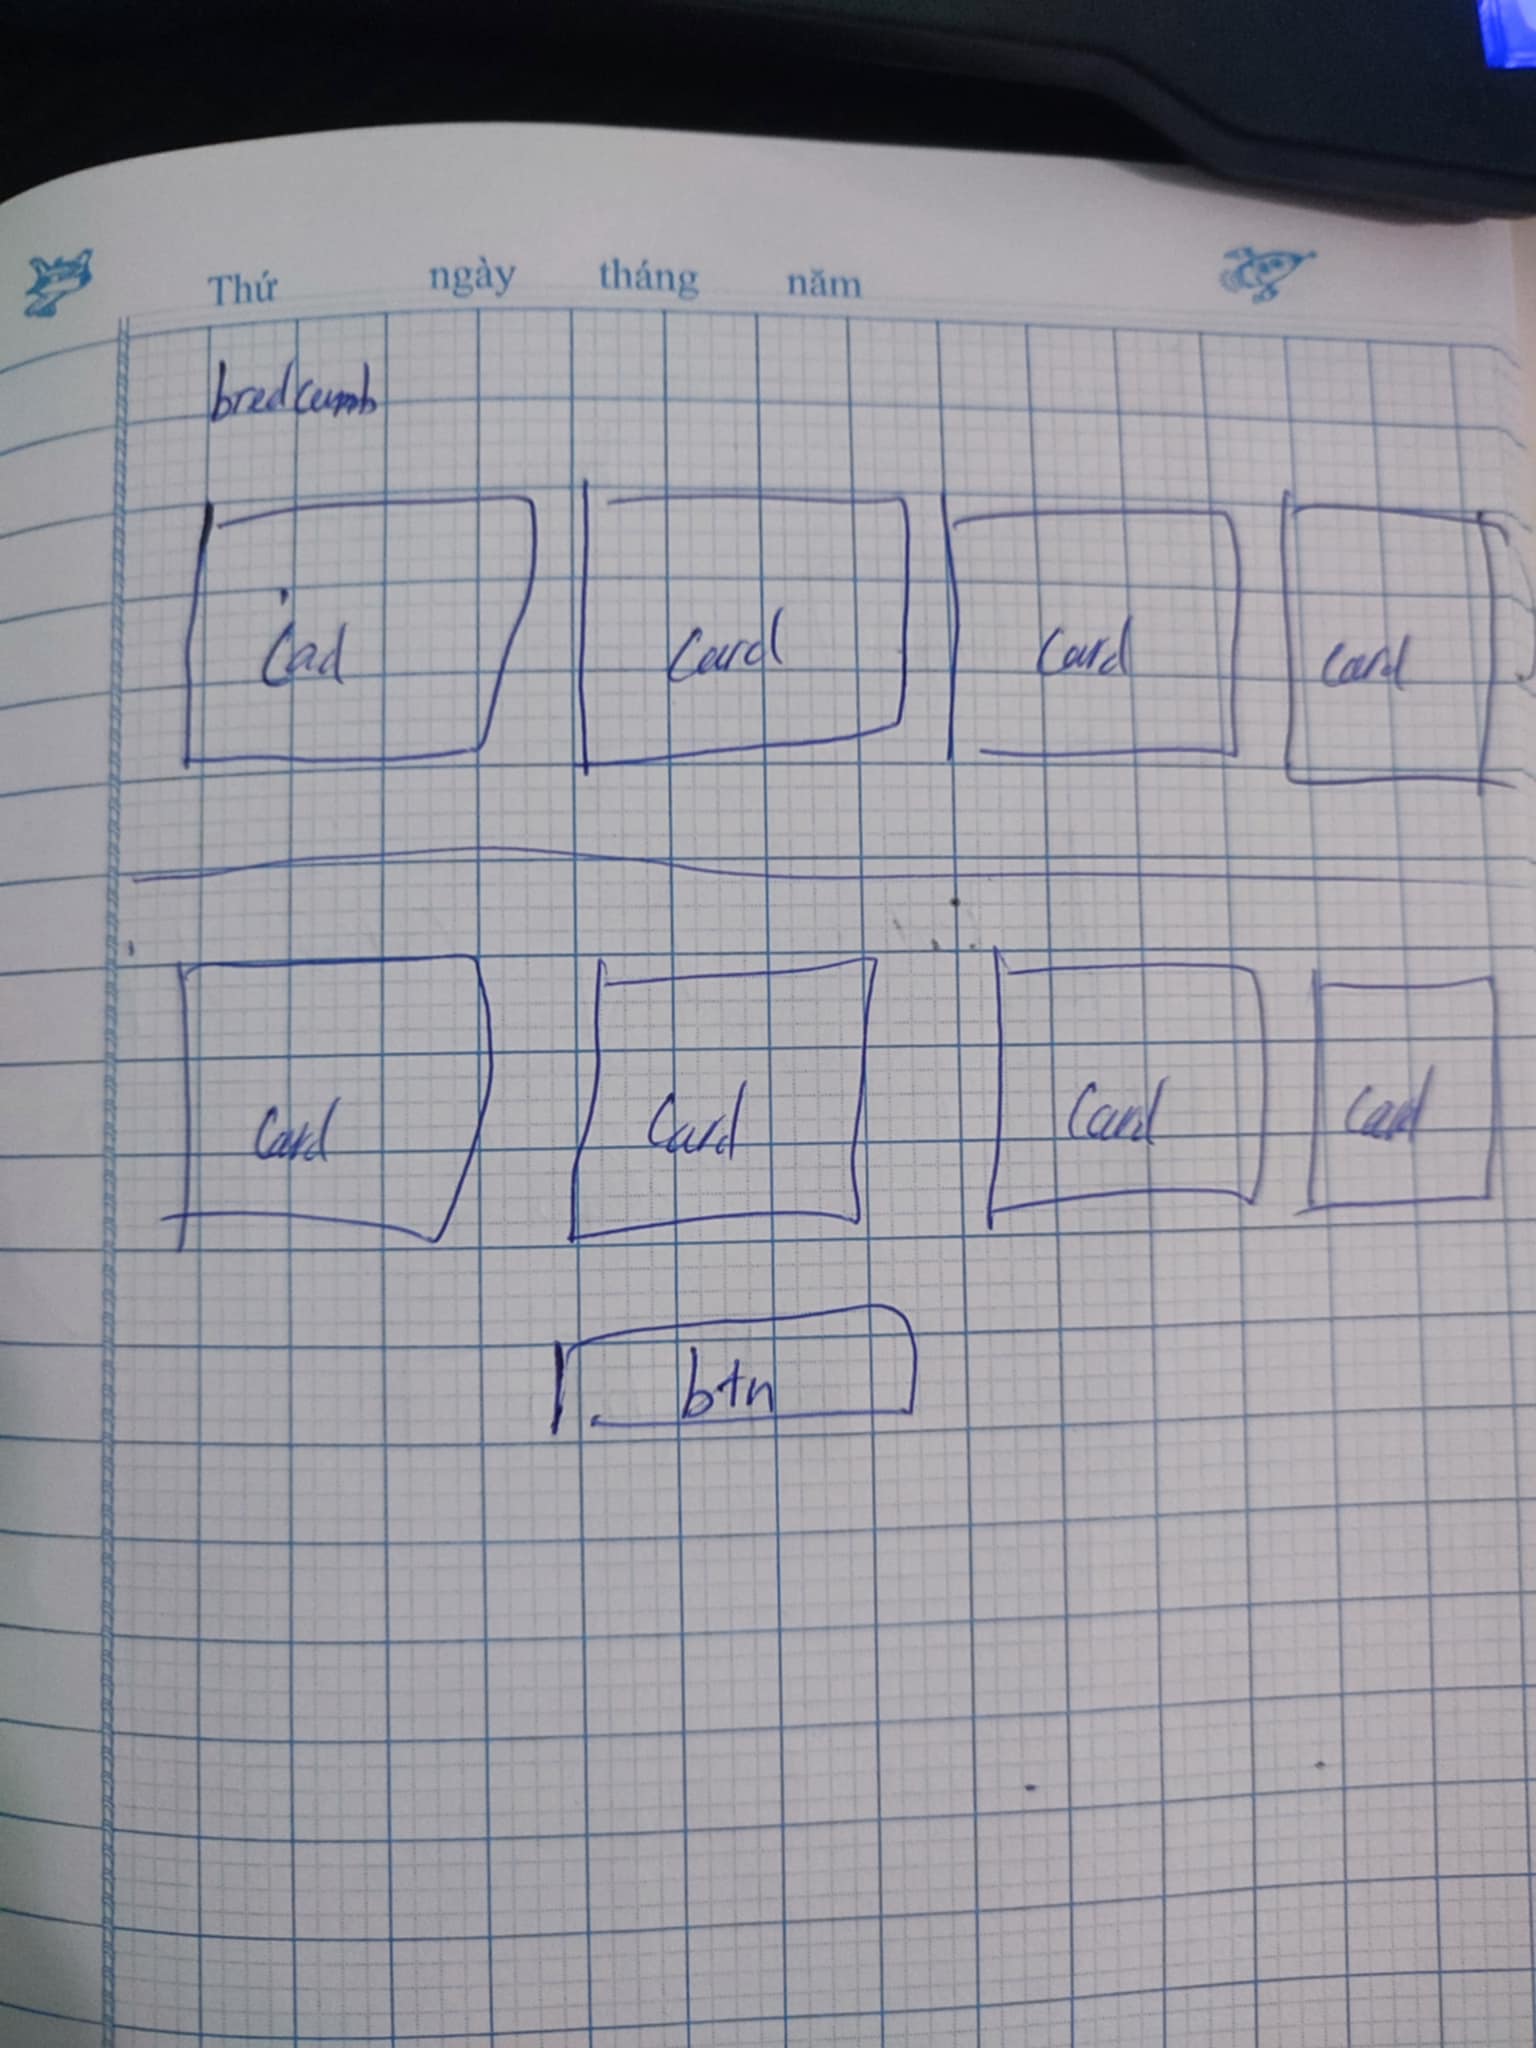 Thứ ngày tháng năm
bredcumb
Cad Card Card Card
Card Card Card Card
btn